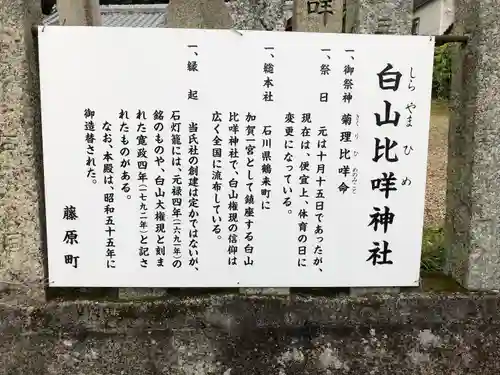 咩
白山比咩神社
しらやまひめ
一、御祭神 菊理比咩命
きくりひめのみこと
一、祭日 元は十月十五日であったが、
現在は、便宜上、体育の日に
変更になっている。
一、総本社 石川県鶴来町に
加賀一宮として鎮座する白山
比咩神社で、白山権現の信仰は
広く全国に流布している。
一、縁起 当氏社の創建は定かではないが、
石灯籠には、元禄四年(一六九一年)の
銘のものや、白山大権現と刻ま
れた寛政四年(一七九二年)と記さ
れたものがある。
なお、本殿は、昭和五十五年に
御造替された。
藤原町